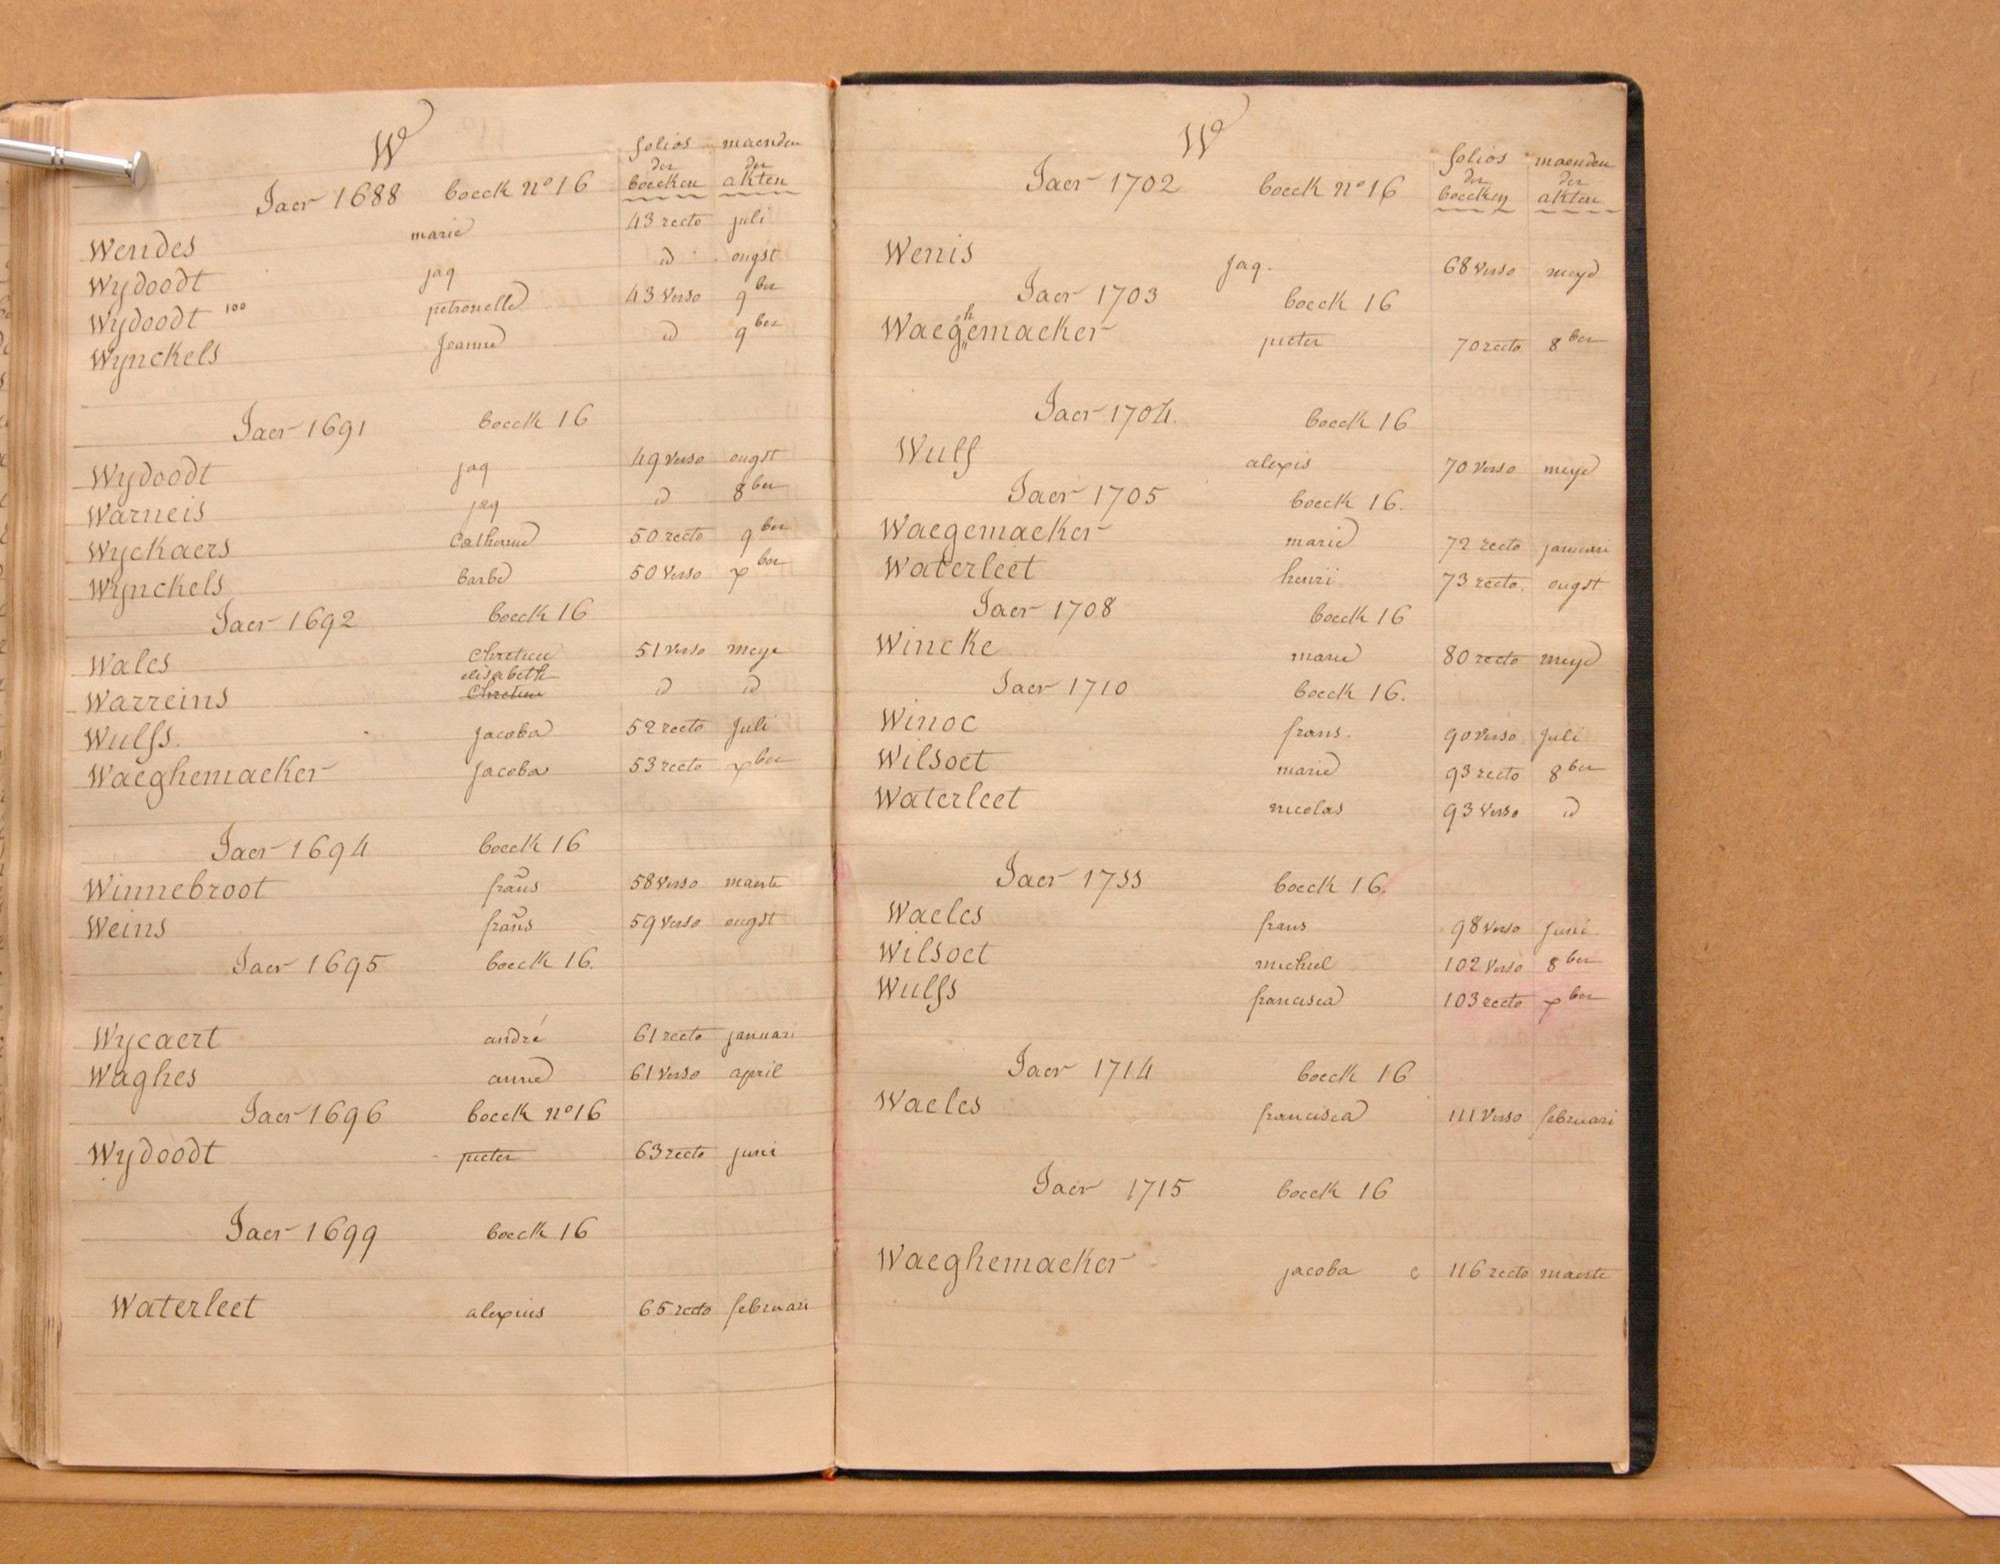 W
folios maenden
der der
Jaer 1688 boeck nº 16 boecken akten
Wendes marie 43 recto juli
Wydoodt jaq id ougst
Wydoodt 100 petronelle 43 verso 9ber
Wynckels Jeanne id 9ber
Jaer 1691 boeck 16
Wydoodt jaq 49 verso ougst
Warneis jaq id 8ber
Wyckaers Catherine 50 recto 9ber
Wynckels barbe 50 verso xber
Jaer 1692 boeck 16
Wales Chretien 51 verso meye
elisabeth
Warreins Chretien id id
Wulfs. jacoba 52 recto Juli
Waeghemaeker jacoba 53 recto xber
Jaer 1694 boeck 16
Winnebroot frans 58 verso maerte
Weins frans 59 verso ougst
Jaer 1695 boeck 16.
Wycaert andré 61 recto januari
Waghes anne 61 verso april
Jaer 1696 boeck nº 16
Wydoodt pieter 63 recto juni
Jaer 1699 boeck 16
Waterleet alexius 65 recto februari
W
folios maenden
der der
Jaer 1702 boeck nº 16 boecken akten
Wenis Jaq. 68 verso meye
Jaer 1703 boeck 16
Waeghemaeker pieter 70 recto 8ber
Jaer 1704. boeck 16
Wulf alexis 70 verso meye
Jaer 1705 boeck 16.
Waegemaeker marie 72 recto januari
Waterleet henri 73 recto. ougst
Jaer 1708 boeck 16
Wincke marie 80 recto meye
Jaer 1710 boeck 16.
Winoc frans. 90 verso Juli
Wilsoet marie 93 recto 8ber
Waterleet nicolas 93 verso id
Jaer boeck 16.
Waeles frans 98 verso Juni
Wilsoet michiel 102 verso 8ber
Wulfs francisca 103 recto xber
Jaer 1714 boeck 16
Waeles francisca 111 verso februari
Jaer 1715 boeck 16
Waeghemaeker jacoba c 116 recto maerte